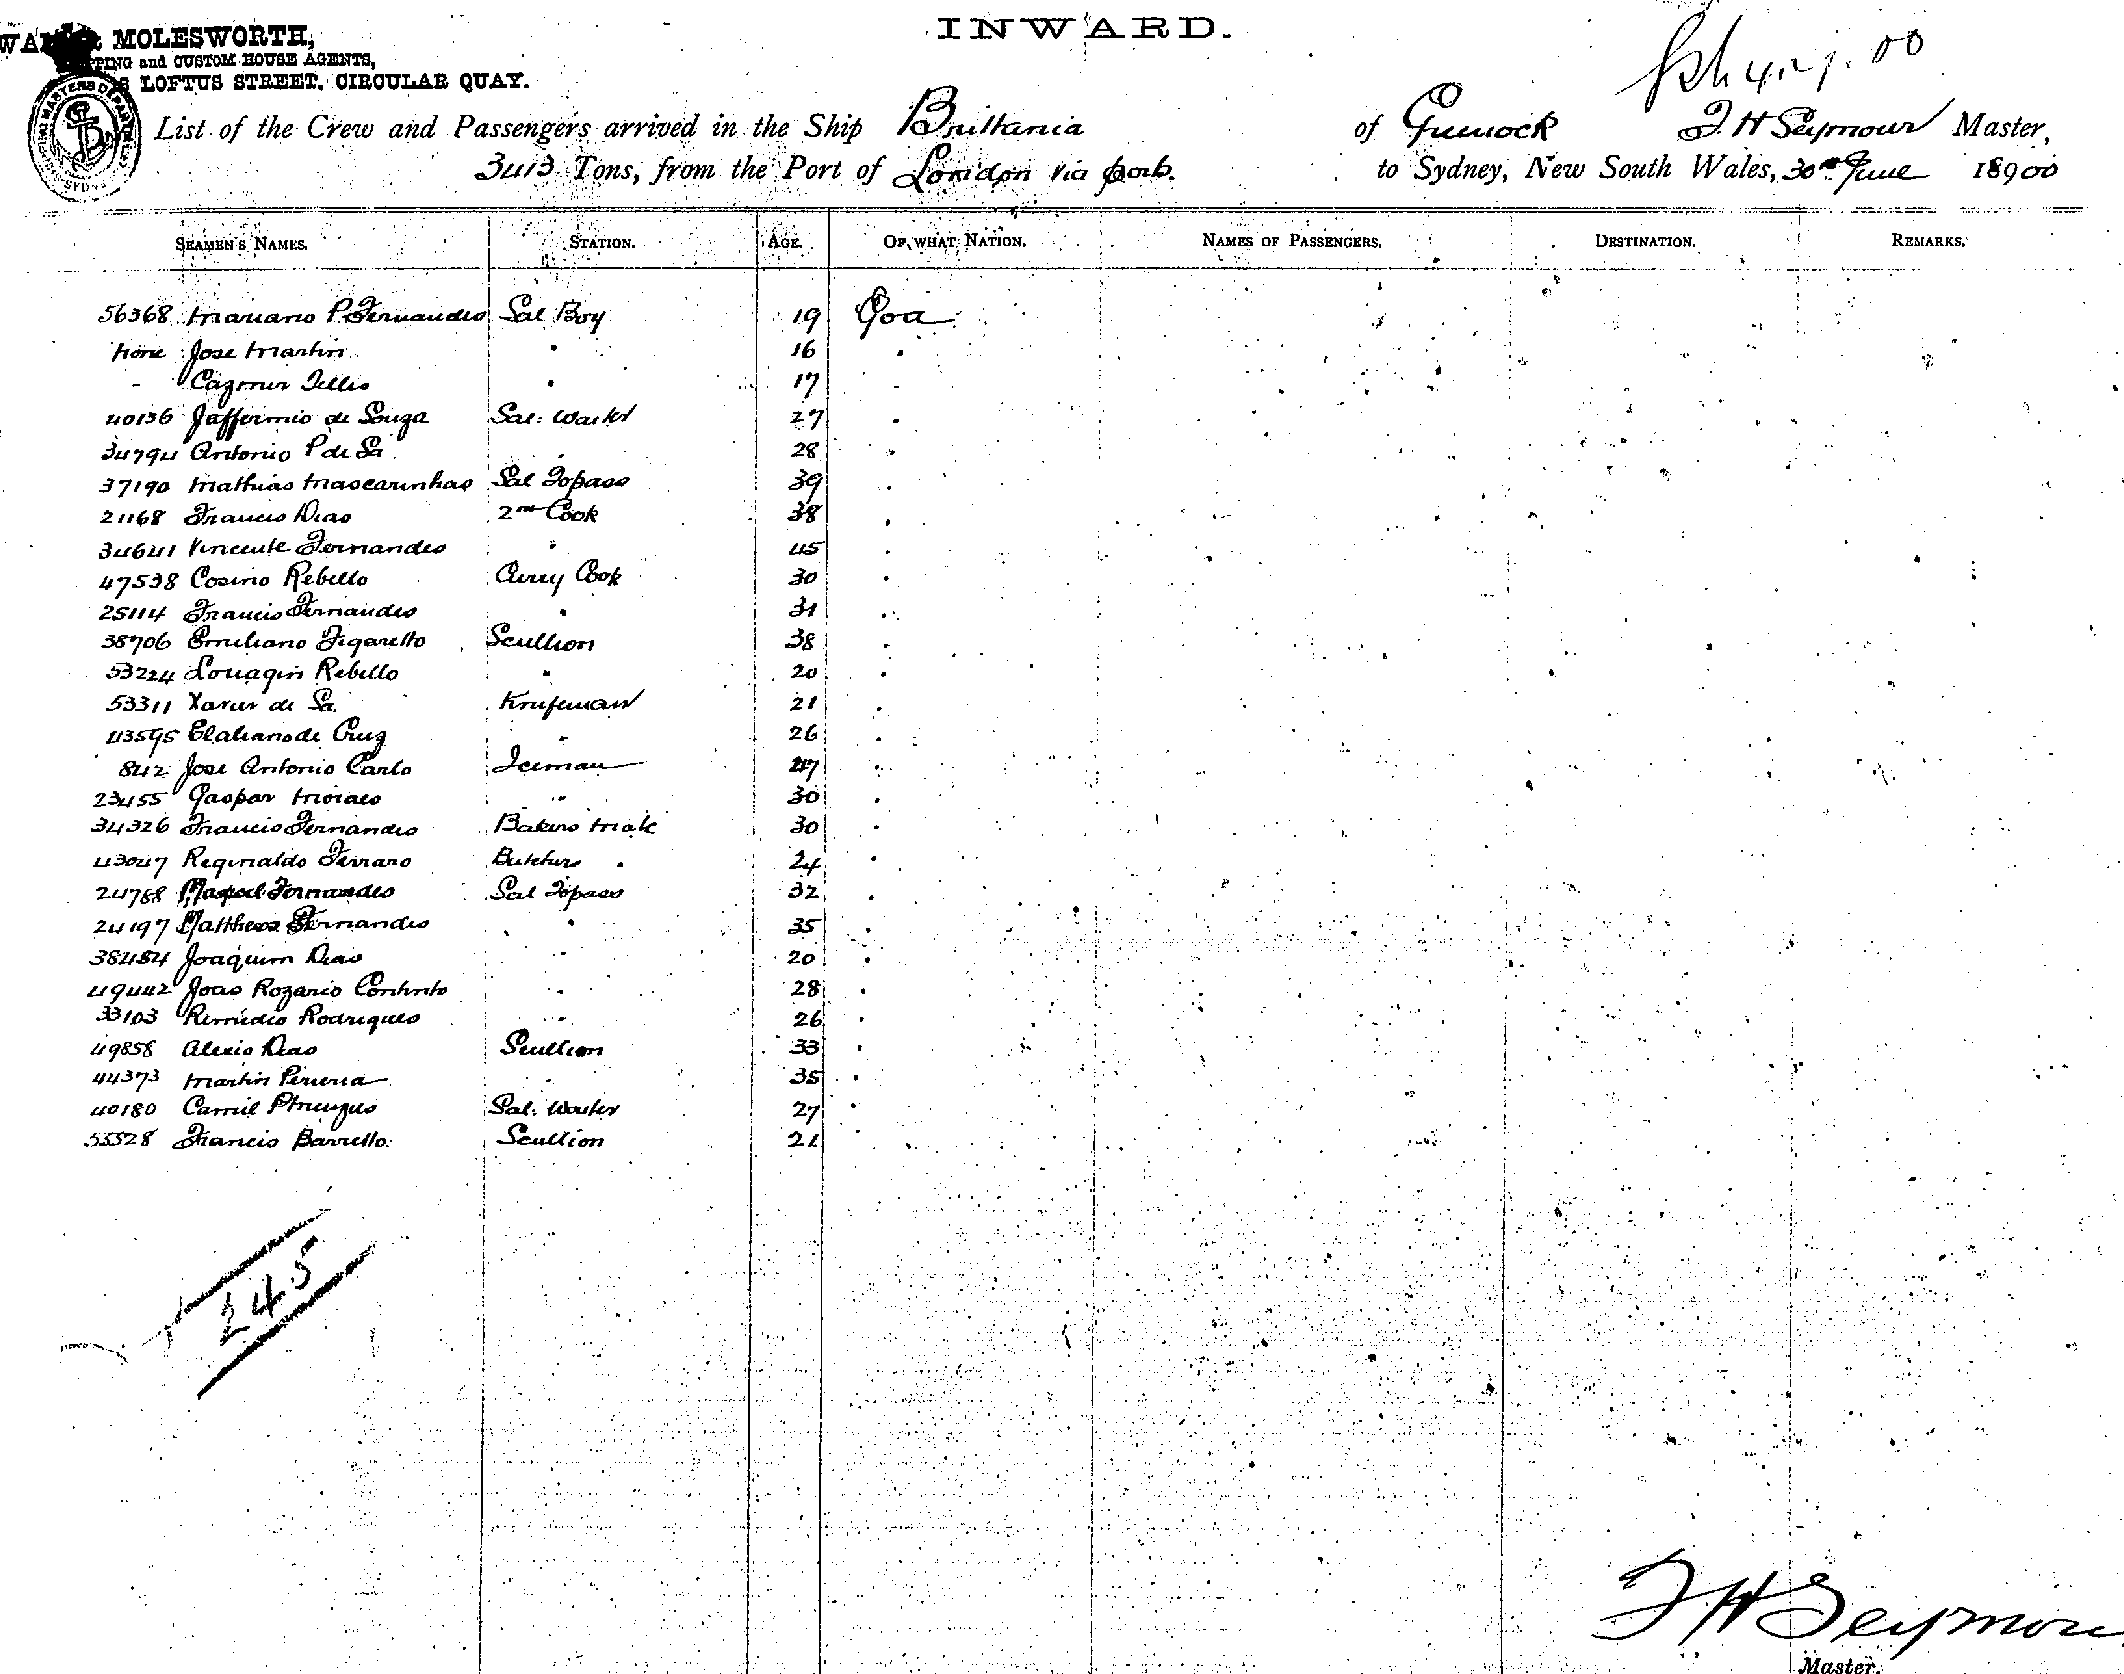 INWARD.
MOLESWORTH,
and CUSTOM HOUSE AGENTS,
LOFTUS STREET, CIRCULAR QUAY.
List of the Crew and Passengers arrived in the Ship Brittania of Greenock F H Seymour Master,
3413 Tons, from the Port of London via ports. to Sydney, New South Wales, 30th June 18900
SEAMEN'S NAMES. STATION. AGE. OF WHAT NATION. NAMES OF PASSENGERS. DESTINATION. REMARKS.
56368 Mariano P. Fernandes Sal Boy 19 Goa
none Jose Martin " 16 "
" Cazmir Tellis " 17 "
40136 Jaffermio de Souza Sal: Waiter 27 "
34794 Antonio P de Sa " 28 "
37190 Mathias Mascarinhas Sal Topass 39 "
21168 Francis Dias 2nd Cook 38 "
34641 Vincente Fernandes " 45 "
47538 Cosmo Rebello Curry Cook 30 "
25114 Francis Fernandes " 31 "
38706 Emiliano Figaretto Scullion 38 "
53224 Louaqin Rebello " 20 "
53311 Xavier de Sa Knifeman 21 "
43595 de Cruz " 26 "
842 Jose Antonio Carlo Iceman 47 "
23455 Gaspar Moraes " 30 "
34326 Francis Fernandes Bakers Mate 30 "
43047 Reginaldo Ferraro Butchers " 24 "
24788 Fernandes Sal Topass 32 "
24197 Matthews Fernandes " 35 "
38484 Joaquim Dias " 20 "
49442 Joao Rozario " 28 "
33103 Remedio Rodrigues " 26 "
49858 Alexio Dias Scullion 33 "
44373 Martin Pereria " 35 "
40180 Camil Sal: Waiter 27 "
55528 Francis Barretto Scullion 21 "
245
F H Seymour
Master.